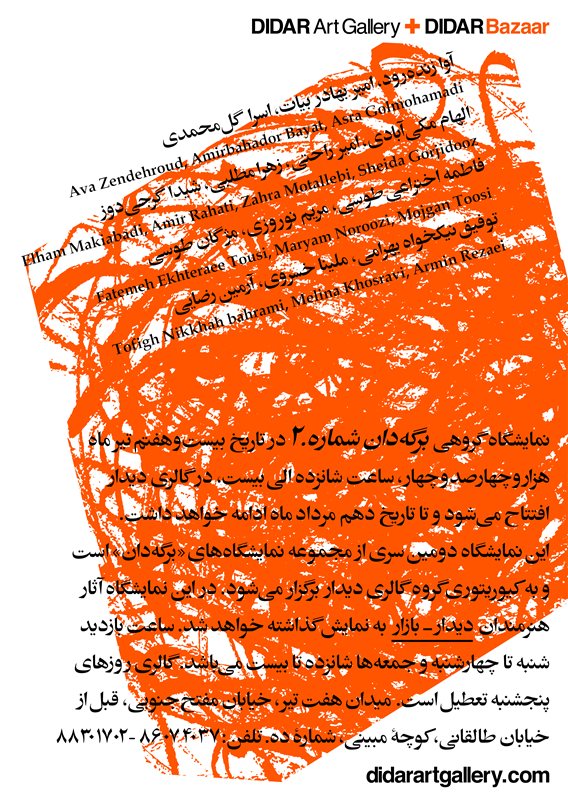 DIDAR Art Gallery + DIDAR Bazaar
آوا زنده‌رود، امیر بهادر بیات، اسرا گل‌محمدی
Ava Zendehroud, Amirbahador Bayat, Asra Golmohamadi
الهام مکی‌آبادی، امیر راحتی، زهرا مطلبی، شیدا گرجی‌دوز
Elham Makiabadi, Amir Rahati, Zahra Motallebi, Sheida Gorjidooz
فاطمه اختراعی طوسی، مریم نوروزی، مژگان طوسی
Fatemeh Ekhteraee Tousi, Maryam Noroozi, Mojgan Toosi
توفیق نیکخواه بهرامی، ملینا خسروی، آرمین رضایی
Tofigh Nikkhah bahrami, Melina Khosravi, Armin Rezaei
نمایشگاه گروهی برگه‌دان شماره.۲ در تاریخ بیست‌وهفتم تیر ماه
هزاروچهارصدوچهار، ساعت شانزده الی بیست، در گالری دیدار
افتتاح می‌شود و تا تاریخ دهم مرداد ماه ادامه خواهد داشت.
این نمایشگاه دومین سری از مجموعه نمایشگاه‌های «برگه‌دان» است
و به کیوریتوری گروه گالری دیدار برگزار می‌شود. در این نمایشگاه آثار
هنرمندان دیدار - بازار به نمایش گذاشته خواهد شد. ساعت بازدید
شنبه تا چهارشنبه و جمعه‌ها شانزده تا بیست می‌باشد. گالری روزهای
پنجشنبه تعطیل است. میدان هفت تیر، خیابان مفتح جنوبی، قبل از
خیابان طالقانی، کوچهٔ مبینی، شمارهٔ ده. تلفن: ۸۶۰۷۴۰۳۷ - ۸۸۳۰۱۷۰۲
didarartgallery.com